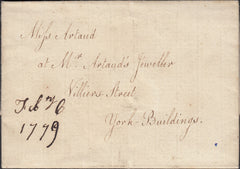 Miss Artaud
at Mr. Artaud's Jeweller
Villiers Street
York-Buildings.
Feb ry 6
1779